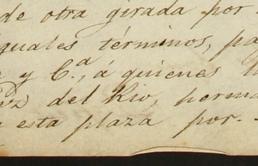 de otra girada por
iguales términos, pa
y C.ª, á quienes
del Rio, herma
esta plaza por